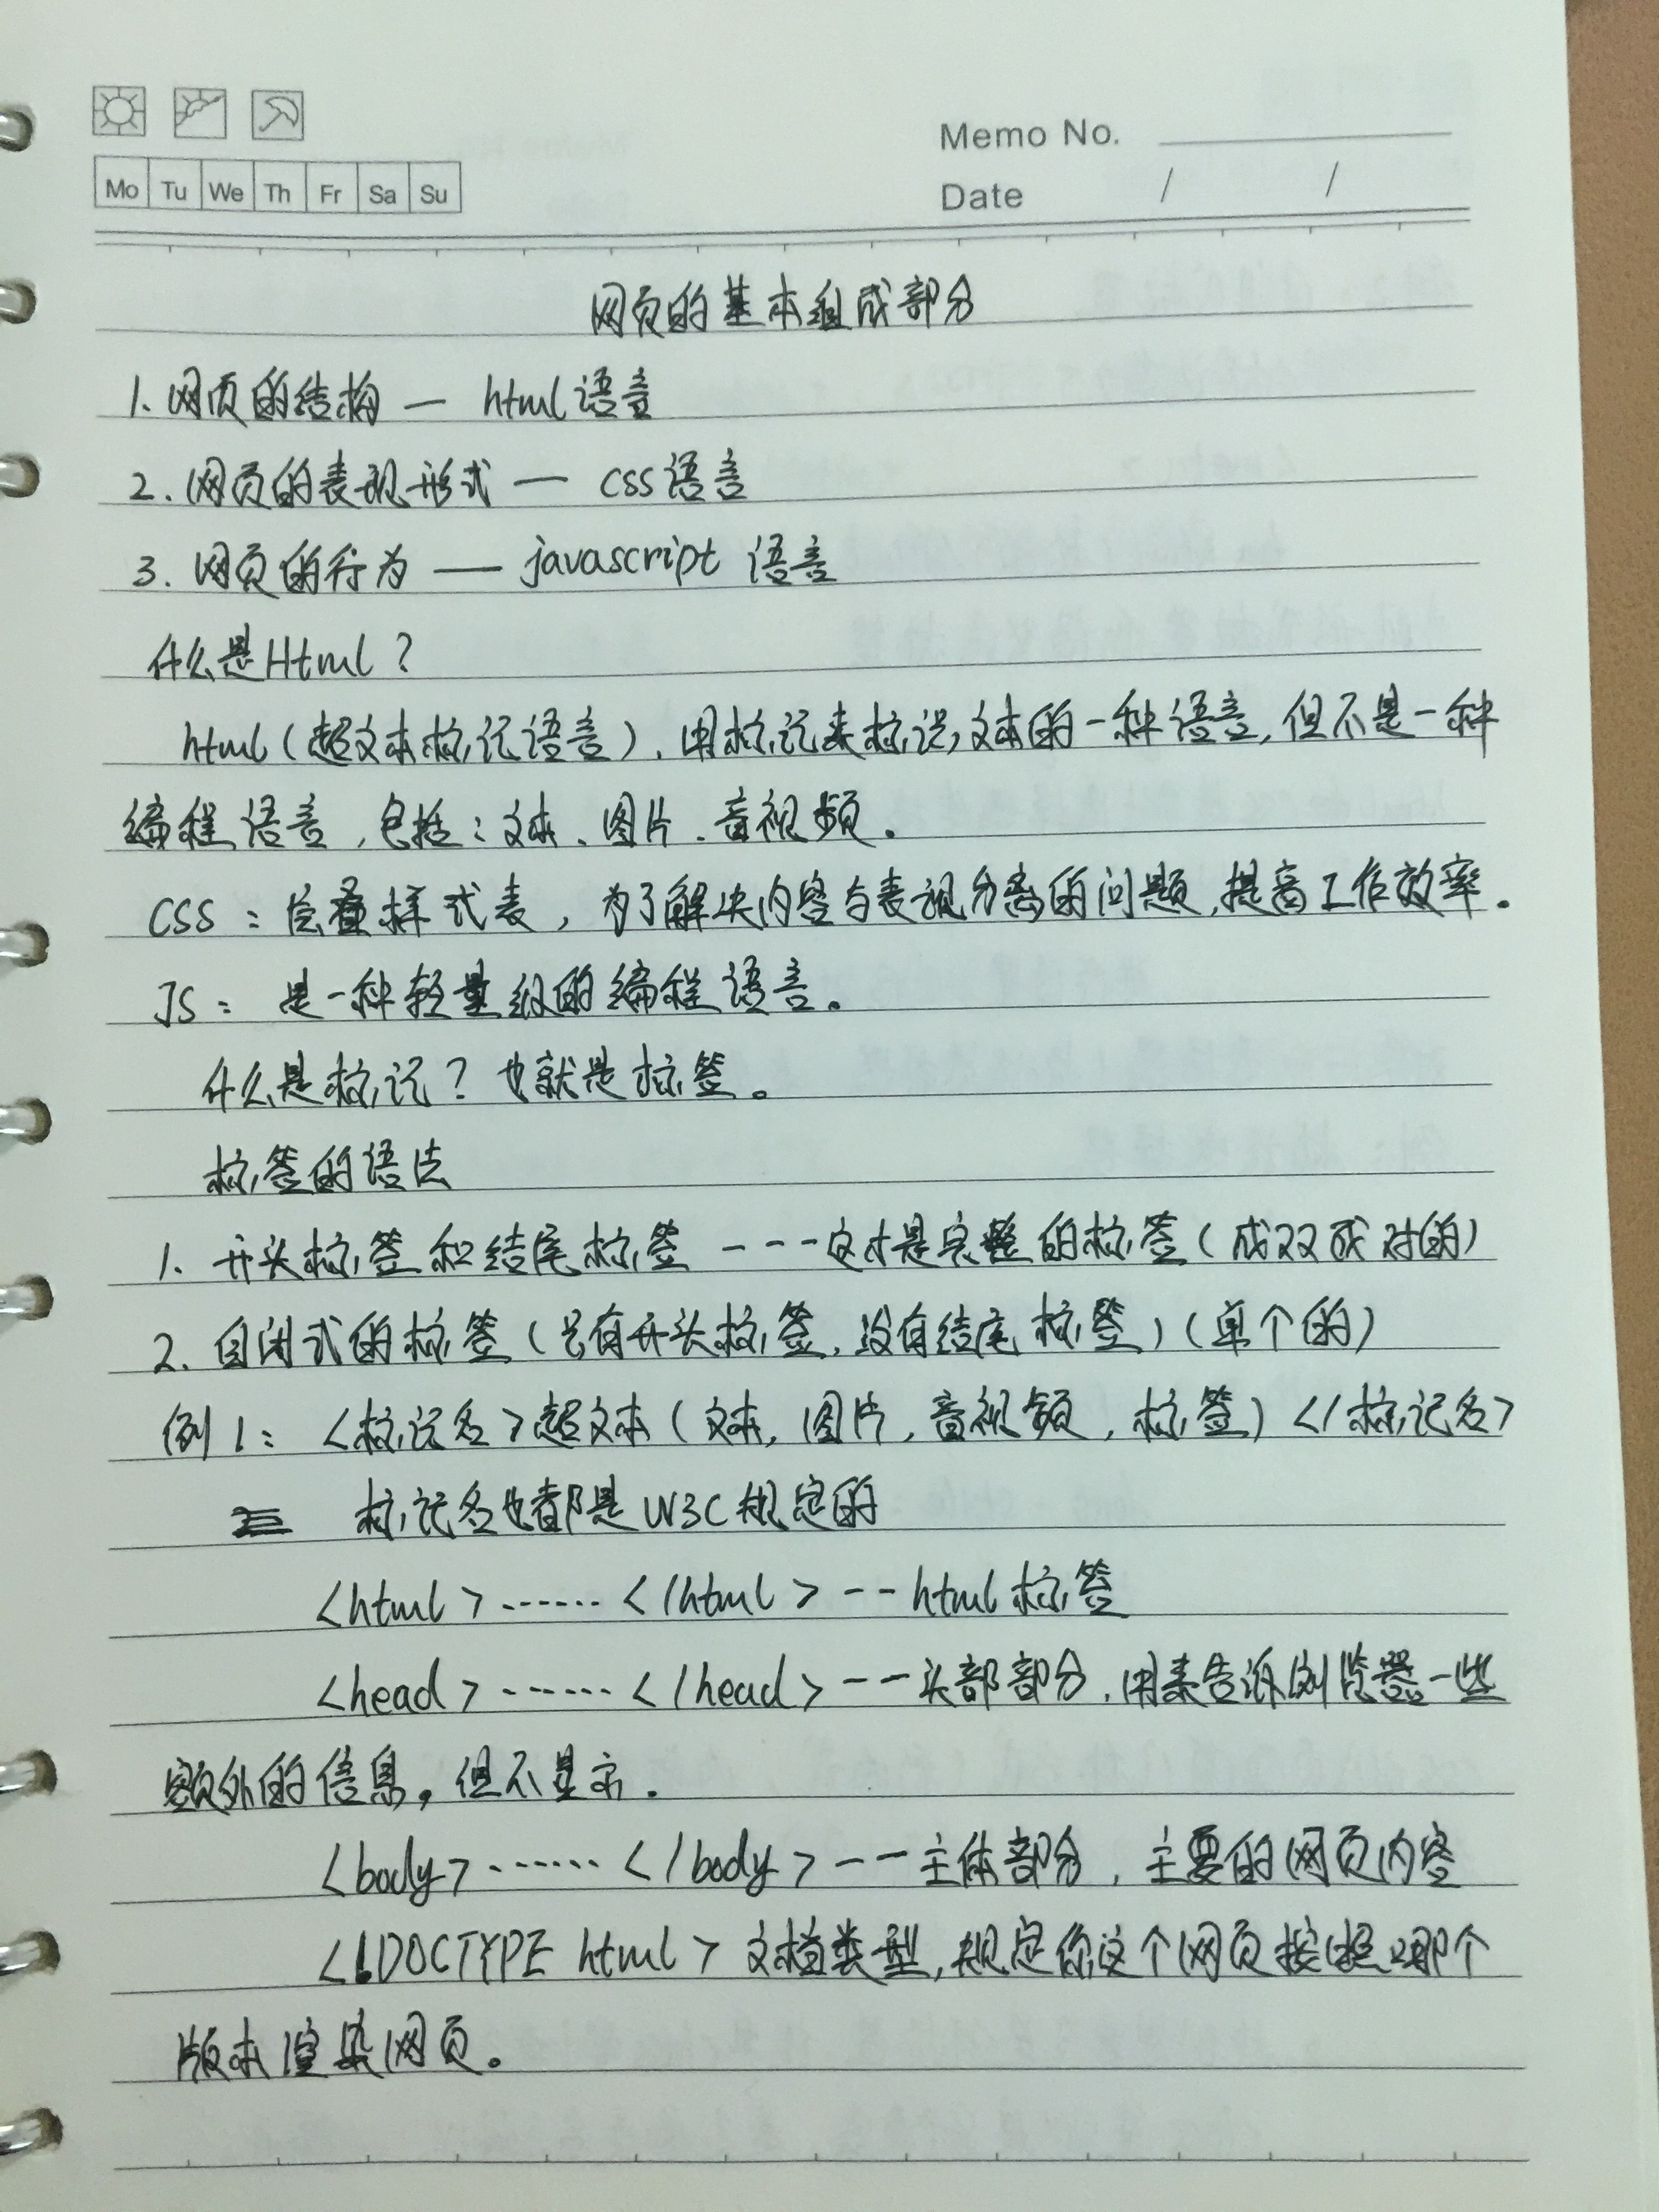 Memo No.
Mo Tu We Th Fr Sa Su
Date / /
网页的基本组成部分
1. 网页的结构 — html语言
2. 网页的表现形式 — CSS语言
3. 网页的行为 — javascript 语言
什么是Html?
html(超文本标记语言),用标记来标识文本的一种语言,但不是一种
编程语言,包括:文本、图片、音视频。
CSS:层叠样式表,为了解决内容与表现分离的问题,提高工作效率。
JS:是一种轻量级的编程语言。
什么是标记?也就是标签。
标签的语法
1. 开头标签和结尾标签 ---这才是完整的标签(成双成对的)
2. 自闭式的标签(只有开头标签,没有结尾标签)(单个的)
例1: <标记名>超文本(文本,图片,音视频,标签)</标记名>
标记名也都是W3C规定的
<html>......</html>--html标签
<head>......</head>--头部部分,用来告诉浏览器一些
额外的信息,但不显示.
<body>......</body>--主体部分,主要的网页内容
<!DOCTYPE html> 文档类型,规定你这个网页按照哪个
版本渲染网页。